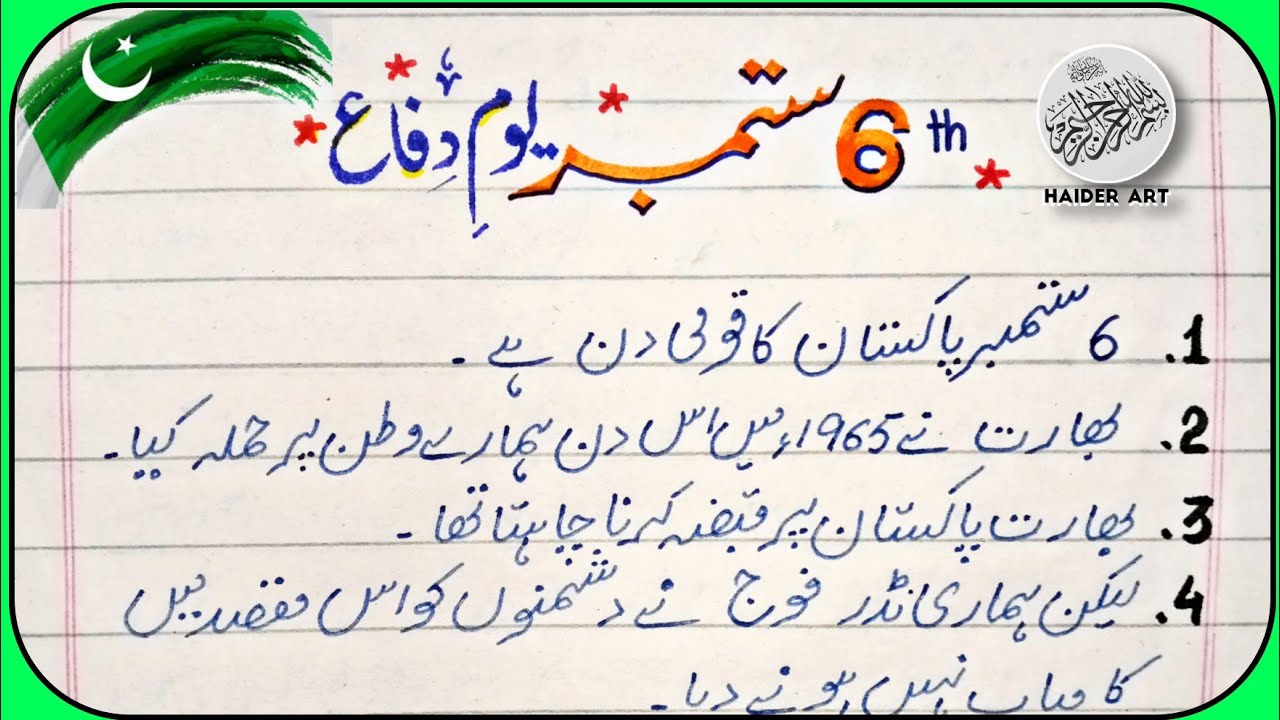 6th ستمبر یومِ دِفاع
HAIDER ART
1. 6 ستمبر پاکستان کا قومی دن ہے۔
2. بھارت نے 1965ء میں اس دن ہمارے وطن پر حملہ کیا۔
3. بھارت پاکستان پر قبضہ کرنا چاہتا تھا۔
4. لیکن ہماری نڈر فوج نے دشمنوں کو اس مقصد میں
کامیاب نہیں ہونے دیا۔